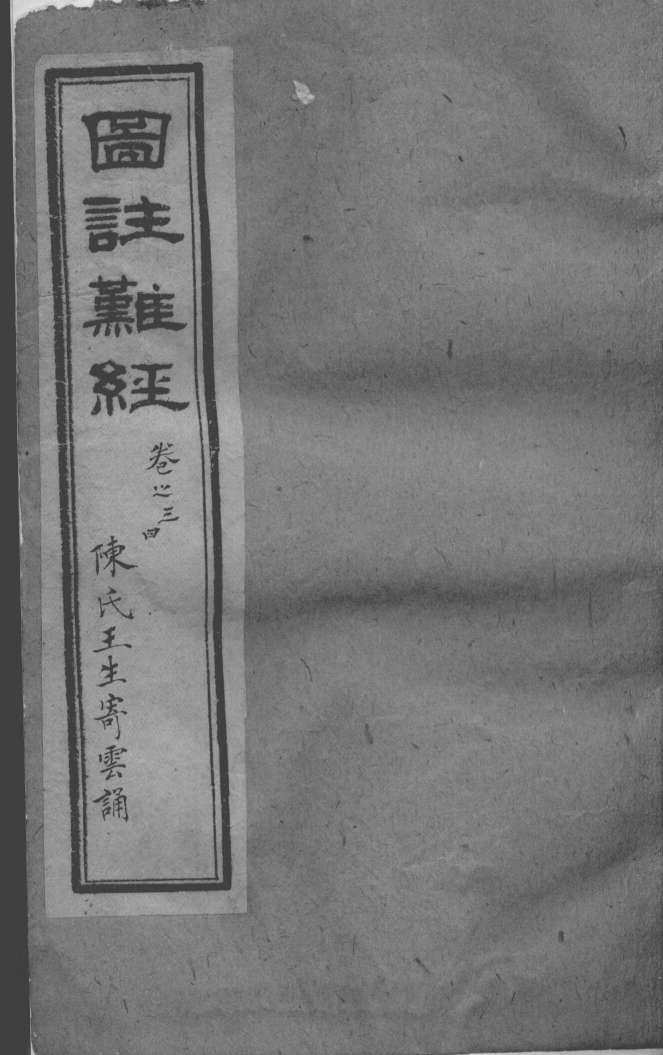 圖註難經
卷之三四
陳氏王生寄雲誦